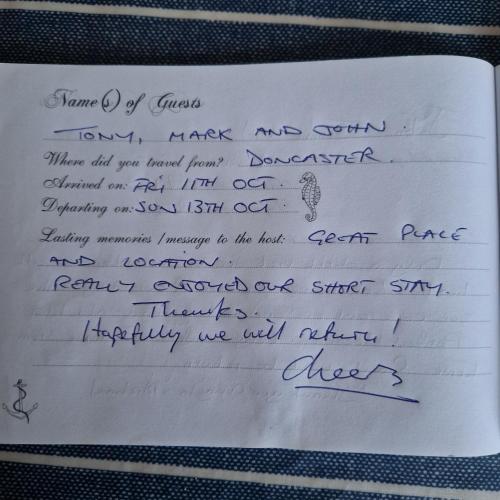 Name(s) of Guests
TONY, MARK AND JOHN.
Where did you travel from? DONCASTER.
Arrived on: FRI 11TH OCT.
Departing on: SUN 13TH OCT.
Lasting memories / message to the host: GREAT PLACE
AND LOCATION.
REALLY ENJOYED OUR SHORT STAY.
Thanks.
Hopefully we will return!
Cheers